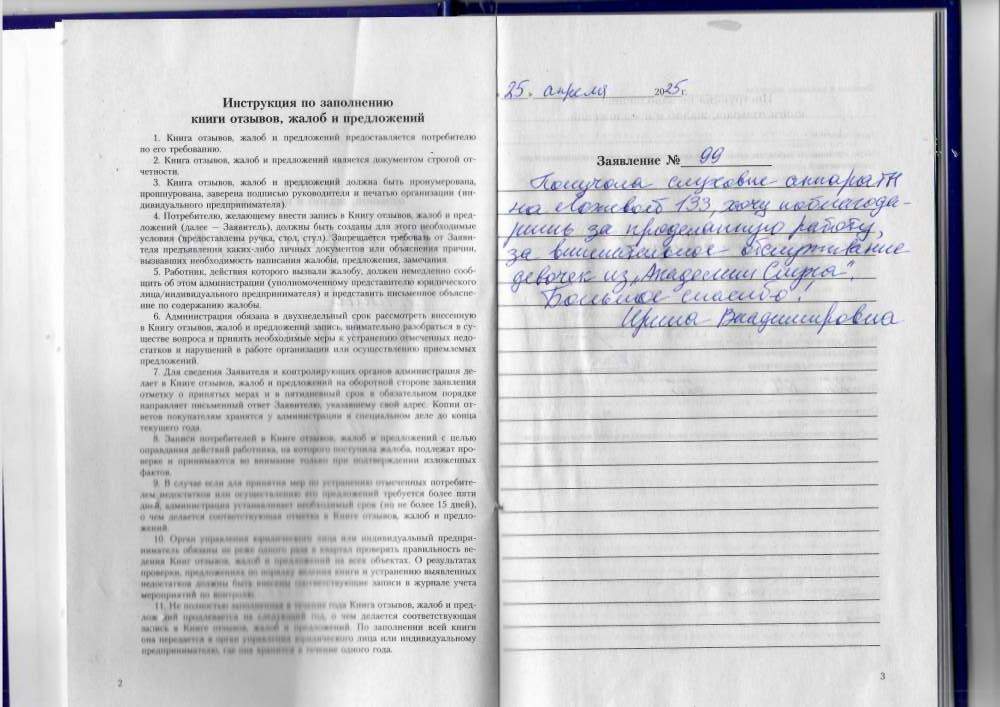 Инструкция по заполнению
книги отзывов, жалоб и предложений
1. Книга отзывов, жалоб и предложений предоставляется потребителю
по его требованию.
2. Книга отзывов, жалоб и предложений является документом строгой от-
четности.
3. Книга отзывов, жалоб и предложений должна быть пронумерована,
прошнурована, заверена подписью руководителя и печатью организации (ин-
дивидуального предпринимателя).
4. Потребителю, желающему внести запись в Книгу отзывов, жалоб и пред-
ложений (далее — Заявитель), должны быть созданы для этого необходимые
условия (предоставлены ручка, стол, стул). Запрещается требовать от Заяви-
теля предъявления каких-либо личных документов или объяснения причин,
вызвавших необходимость написания жалобы, предложения, замечания.
5. Работник, действия которого вызвали жалобу, должен немедленно сооб-
щить об этом администрации (уполномоченному представителю юридического
лица/индивидуального предпринимателя) и представить письменное объясне-
ние по содержанию жалобы.
6. Администрация обязана в двухнедельный срок рассмотреть внесенную
в Книгу отзывов, жалоб и предложений запись, внимательно разобраться в су-
ществе вопроса и принять необходимые меры к устранению отмеченных недо-
статков и нарушений в работе организации или осуществлению приемлемых
предложений.
7. Для сведения Заявителя и контролирующих органов администрация де-
лает в Книге отзывов, жалоб и предложений на оборотной стороне заявления
отметку о принятых мерах и в пятидневный срок в обязательном порядке
направляет письменный ответ Заявителю, указавшему свой адрес. Копии от-
ветов покупателям хранятся у администрации в специальном деле до конца
текущего года.
8. Записи потребителей в Книге отзывов, жалоб и предложений с целью
оправдания действий работника, на которого поступила жалоба, подлежат про-
верке и принимаются во внимание только при подтверждении изложенных
фактов.
9. В случае если для принятия мер по устранению отмеченных потребите-
лем недостатков или осуществлению его предложений требуется более пяти
дней, администрация устанавливает необходимый срок (но не более 15 дней),
о чем делается соответствующая отметка в Книге отзывов, жалоб и предло-
жений.
10. Орган управления юридического лица или индивидуальный предпри-
ниматель обязаны не реже одного раза в квартал проверять правильность ве-
дения Книг отзывов, жалоб и предложений на всех объектах. О результатах
проверки, предложениях по порядку ведения книги и устранению выявленных
недостатков должны быть внесены соответствующие записи в журнале учета
мероприятий по контролю.
11. Не полностью заполненная в течение года Книга отзывов, жалоб и пред-
лож дий продлевается на следующий год, о чем делается соответствующая
запись в Книге отзывов, жалоб и предложений. По заполнении всей книги
она передается в орган управления юридического лица или индивидуальному
предпринимателю, где она хранится в течение одного года.
2
25 апреля 2025 г.
Заявление № 99
Получала слуховые аппараты
на 133, хочу поблагода-
рить за проделанную работу,
за внимательное обслуживание
девочек из „Академии Слуха".
Большое спасибо!
Ирина Владимировна
3